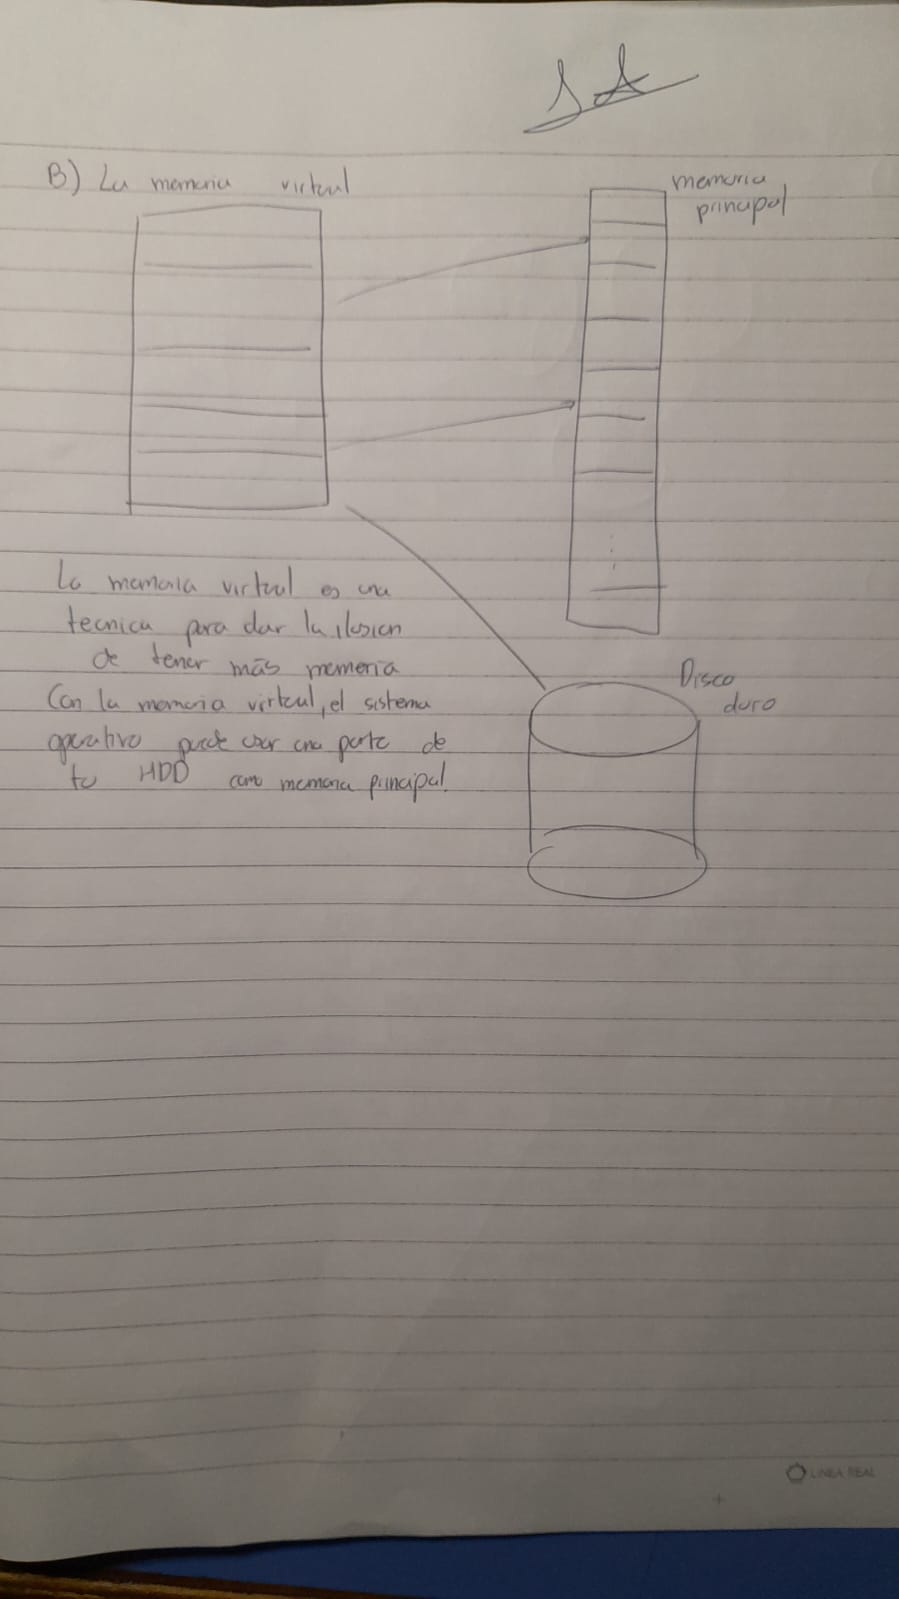 B) La memoria virtual
memoria
principal
La memoria virtual es una
tecnica para dar la ilusion
de tener más memoria
Con la memoria virtual, el sistema
operativo puede usar una parte de
tu HDD como memoria principal.
Disco
duro
LINEA REAL